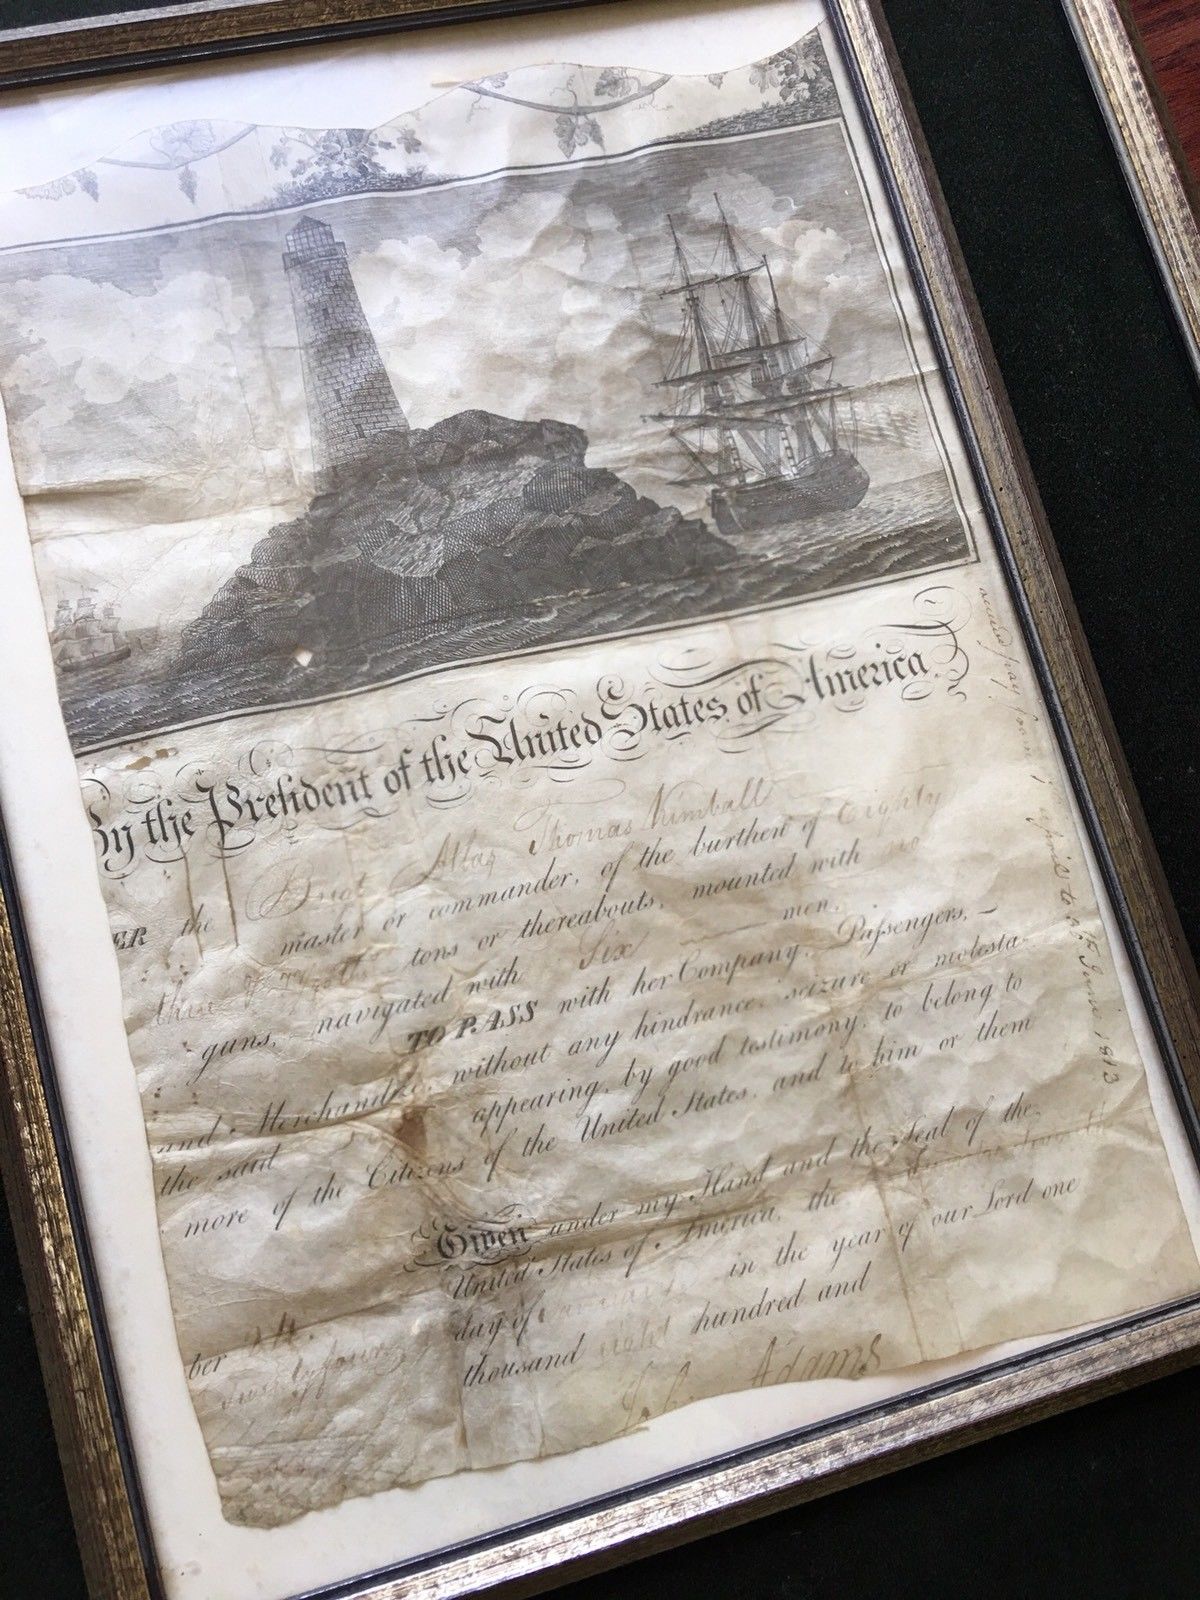 By the President of the United States of America
ER the Brig Atlas Thomas Kimball
master or commander, of the burthen of Eighty
three tons or thereabouts, mounted with no
guns, navigated with Six men.
TO PASS with her Company, Passengers,
and Merchandize, without any hindrance, seizure or molesta-
the said appearing, by good testimony, to belong to
more of the Citizens of the United States, and to him or them
Given under my Hand and the Seal of the
United States of America, the
day of January in the year of our Lord one
ber 24. thousand eight hundred and
twenty four
John Adams
pay from to 1st June 1813